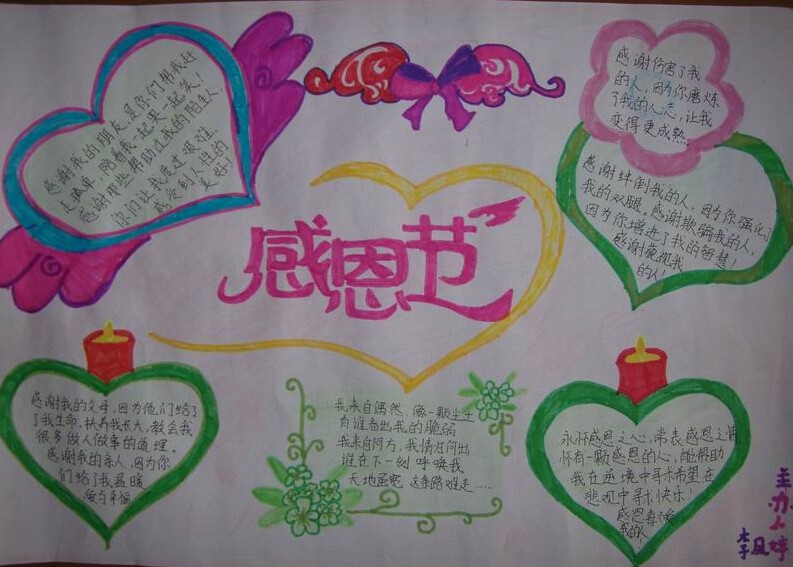 感谢我的朋友是你们帮我赶
走孤单,陪着我一起哭一起笑!
感谢那些帮助过我的陌生人,
你们让我度过艰难
感受到人性的
美好!
感谢伤害了我
的人,因为你磨炼
了我的人志,让我
变得更成熟,
感谢绊倒我的人,因为你强化了
我的双腿,感谢欺骗我的人,
因为你增进了我的智慧!
感谢藐视我
的人!
感恩节
感谢我的父母,因为他们给了
了我生命,扶养我长大,教会我
很多做人做事的道理。
感谢我的亲人,因为你
们给了我温暖
与幸福
我来自偶然,像一颗尘土
有谁看出我的脆弱
我来自何方,我情归何出
谁在下一刻呼唤我
天地虽宽,这条路难走……
永怀感恩之心,常表感恩之情
怀有一颗感恩的心,能帮助
我在逆境中寻求希望在
悲观中寻求快乐!
感恩每个
我的人
主办人
李凤婷